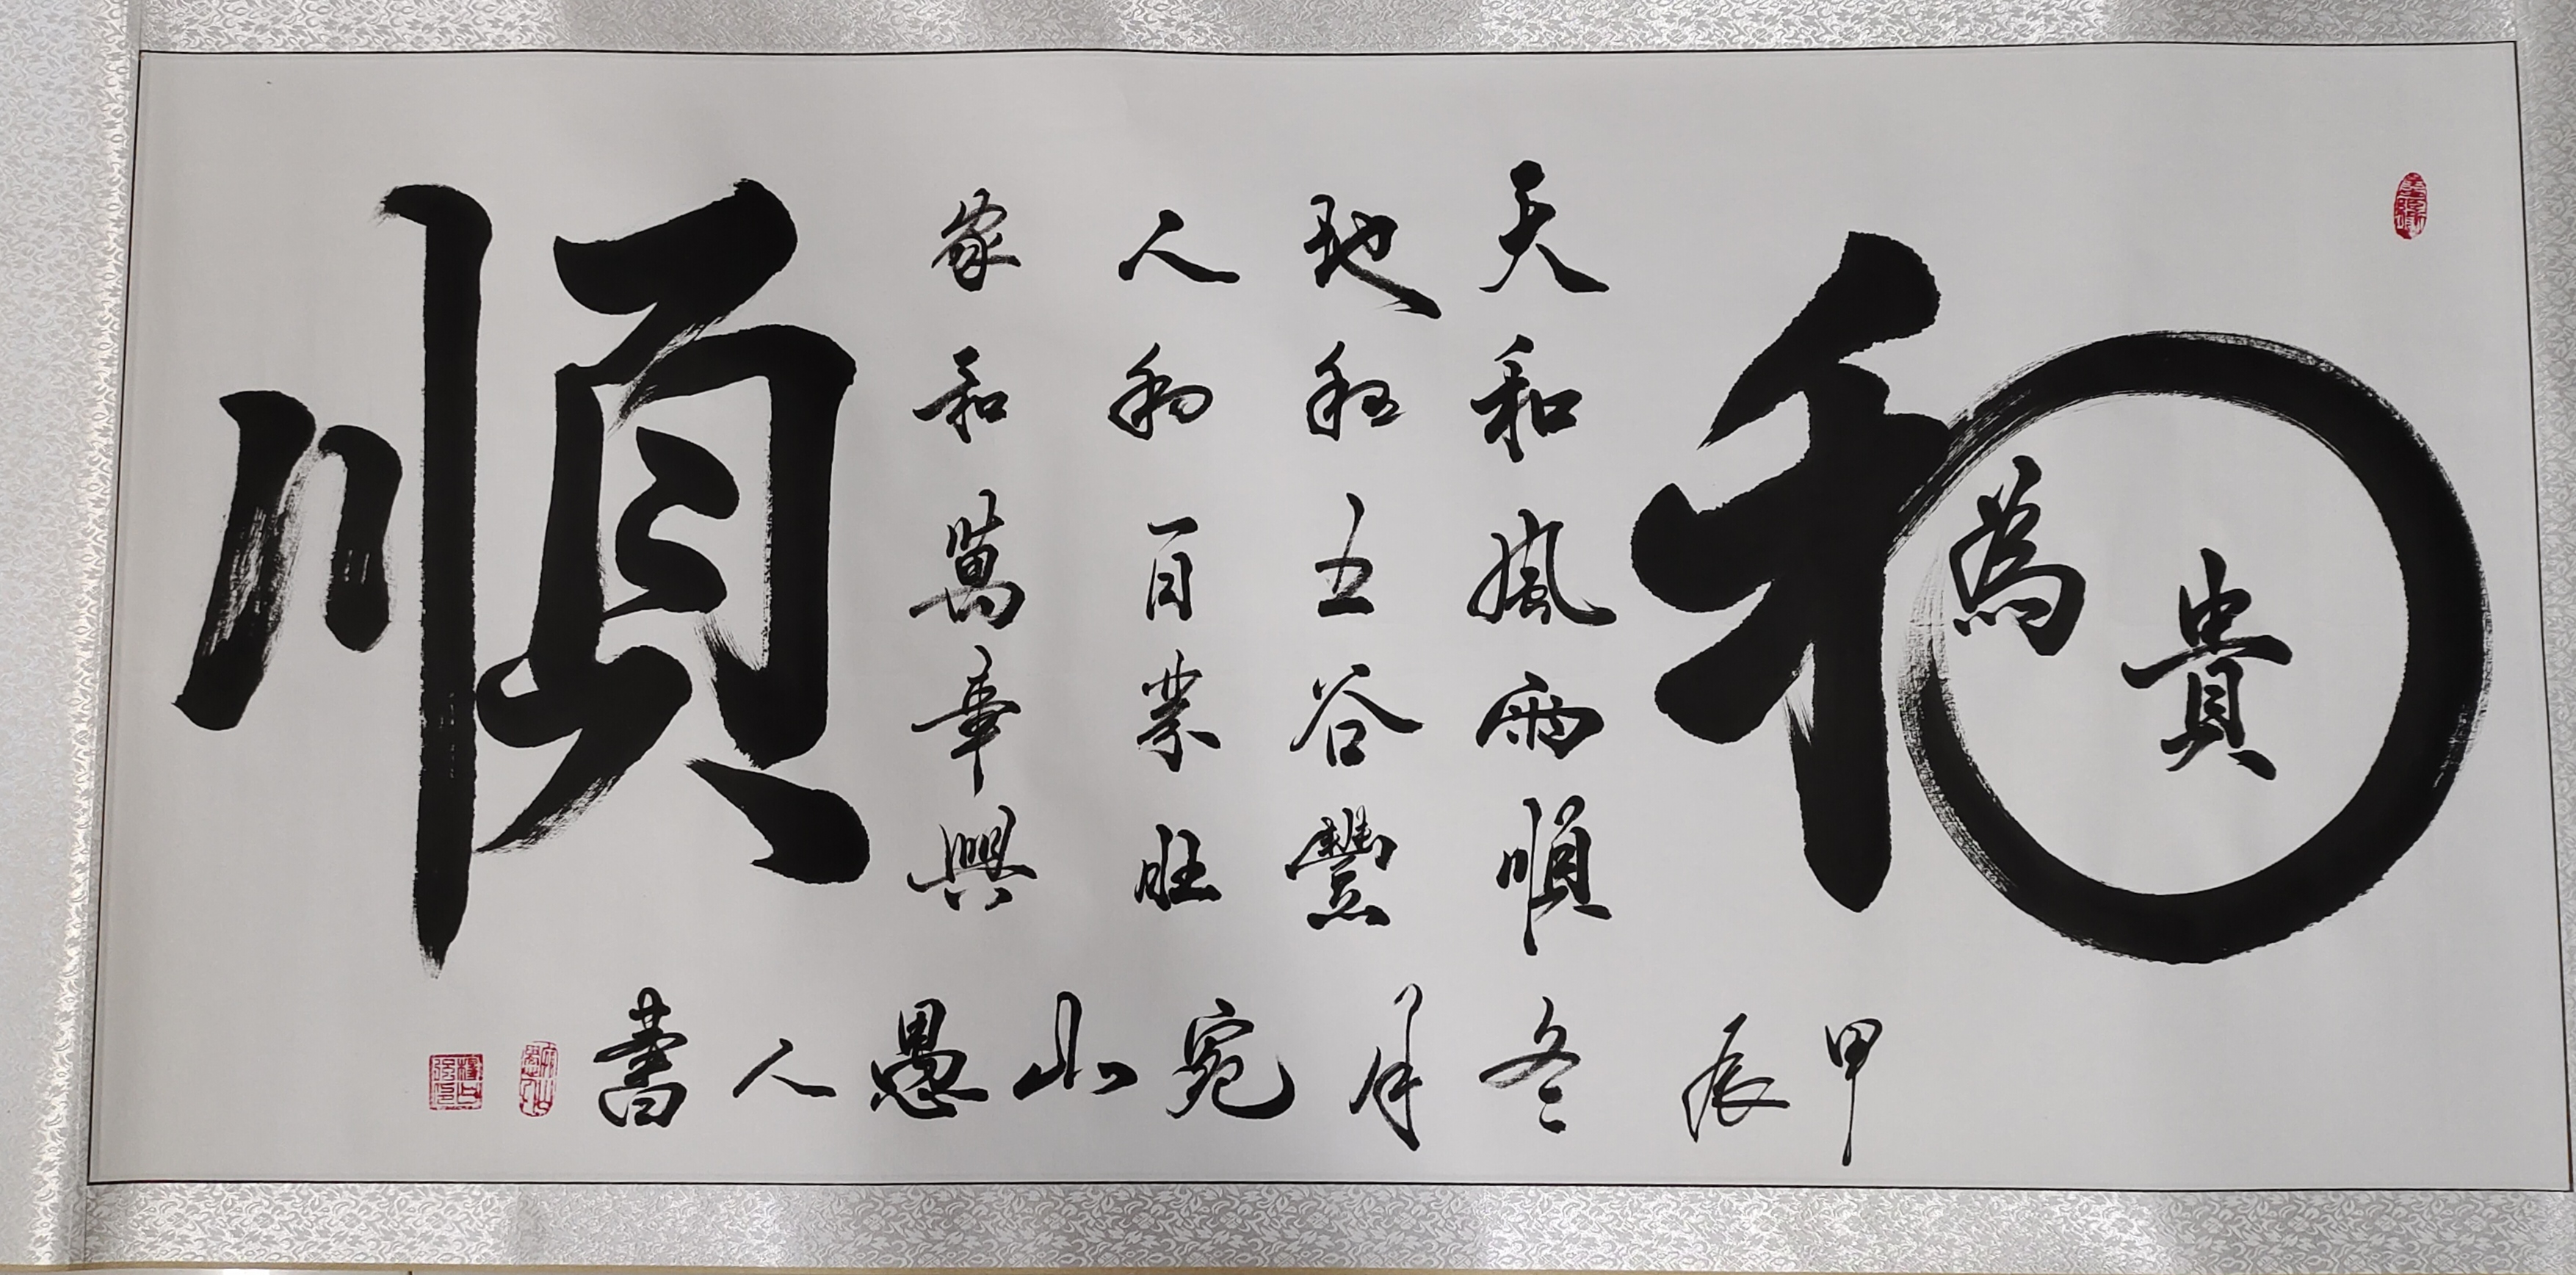 和
為貴
天和風雨順
地和五谷豐
人和百業旺
家和萬事興
順
甲辰冬月宛山愚人書